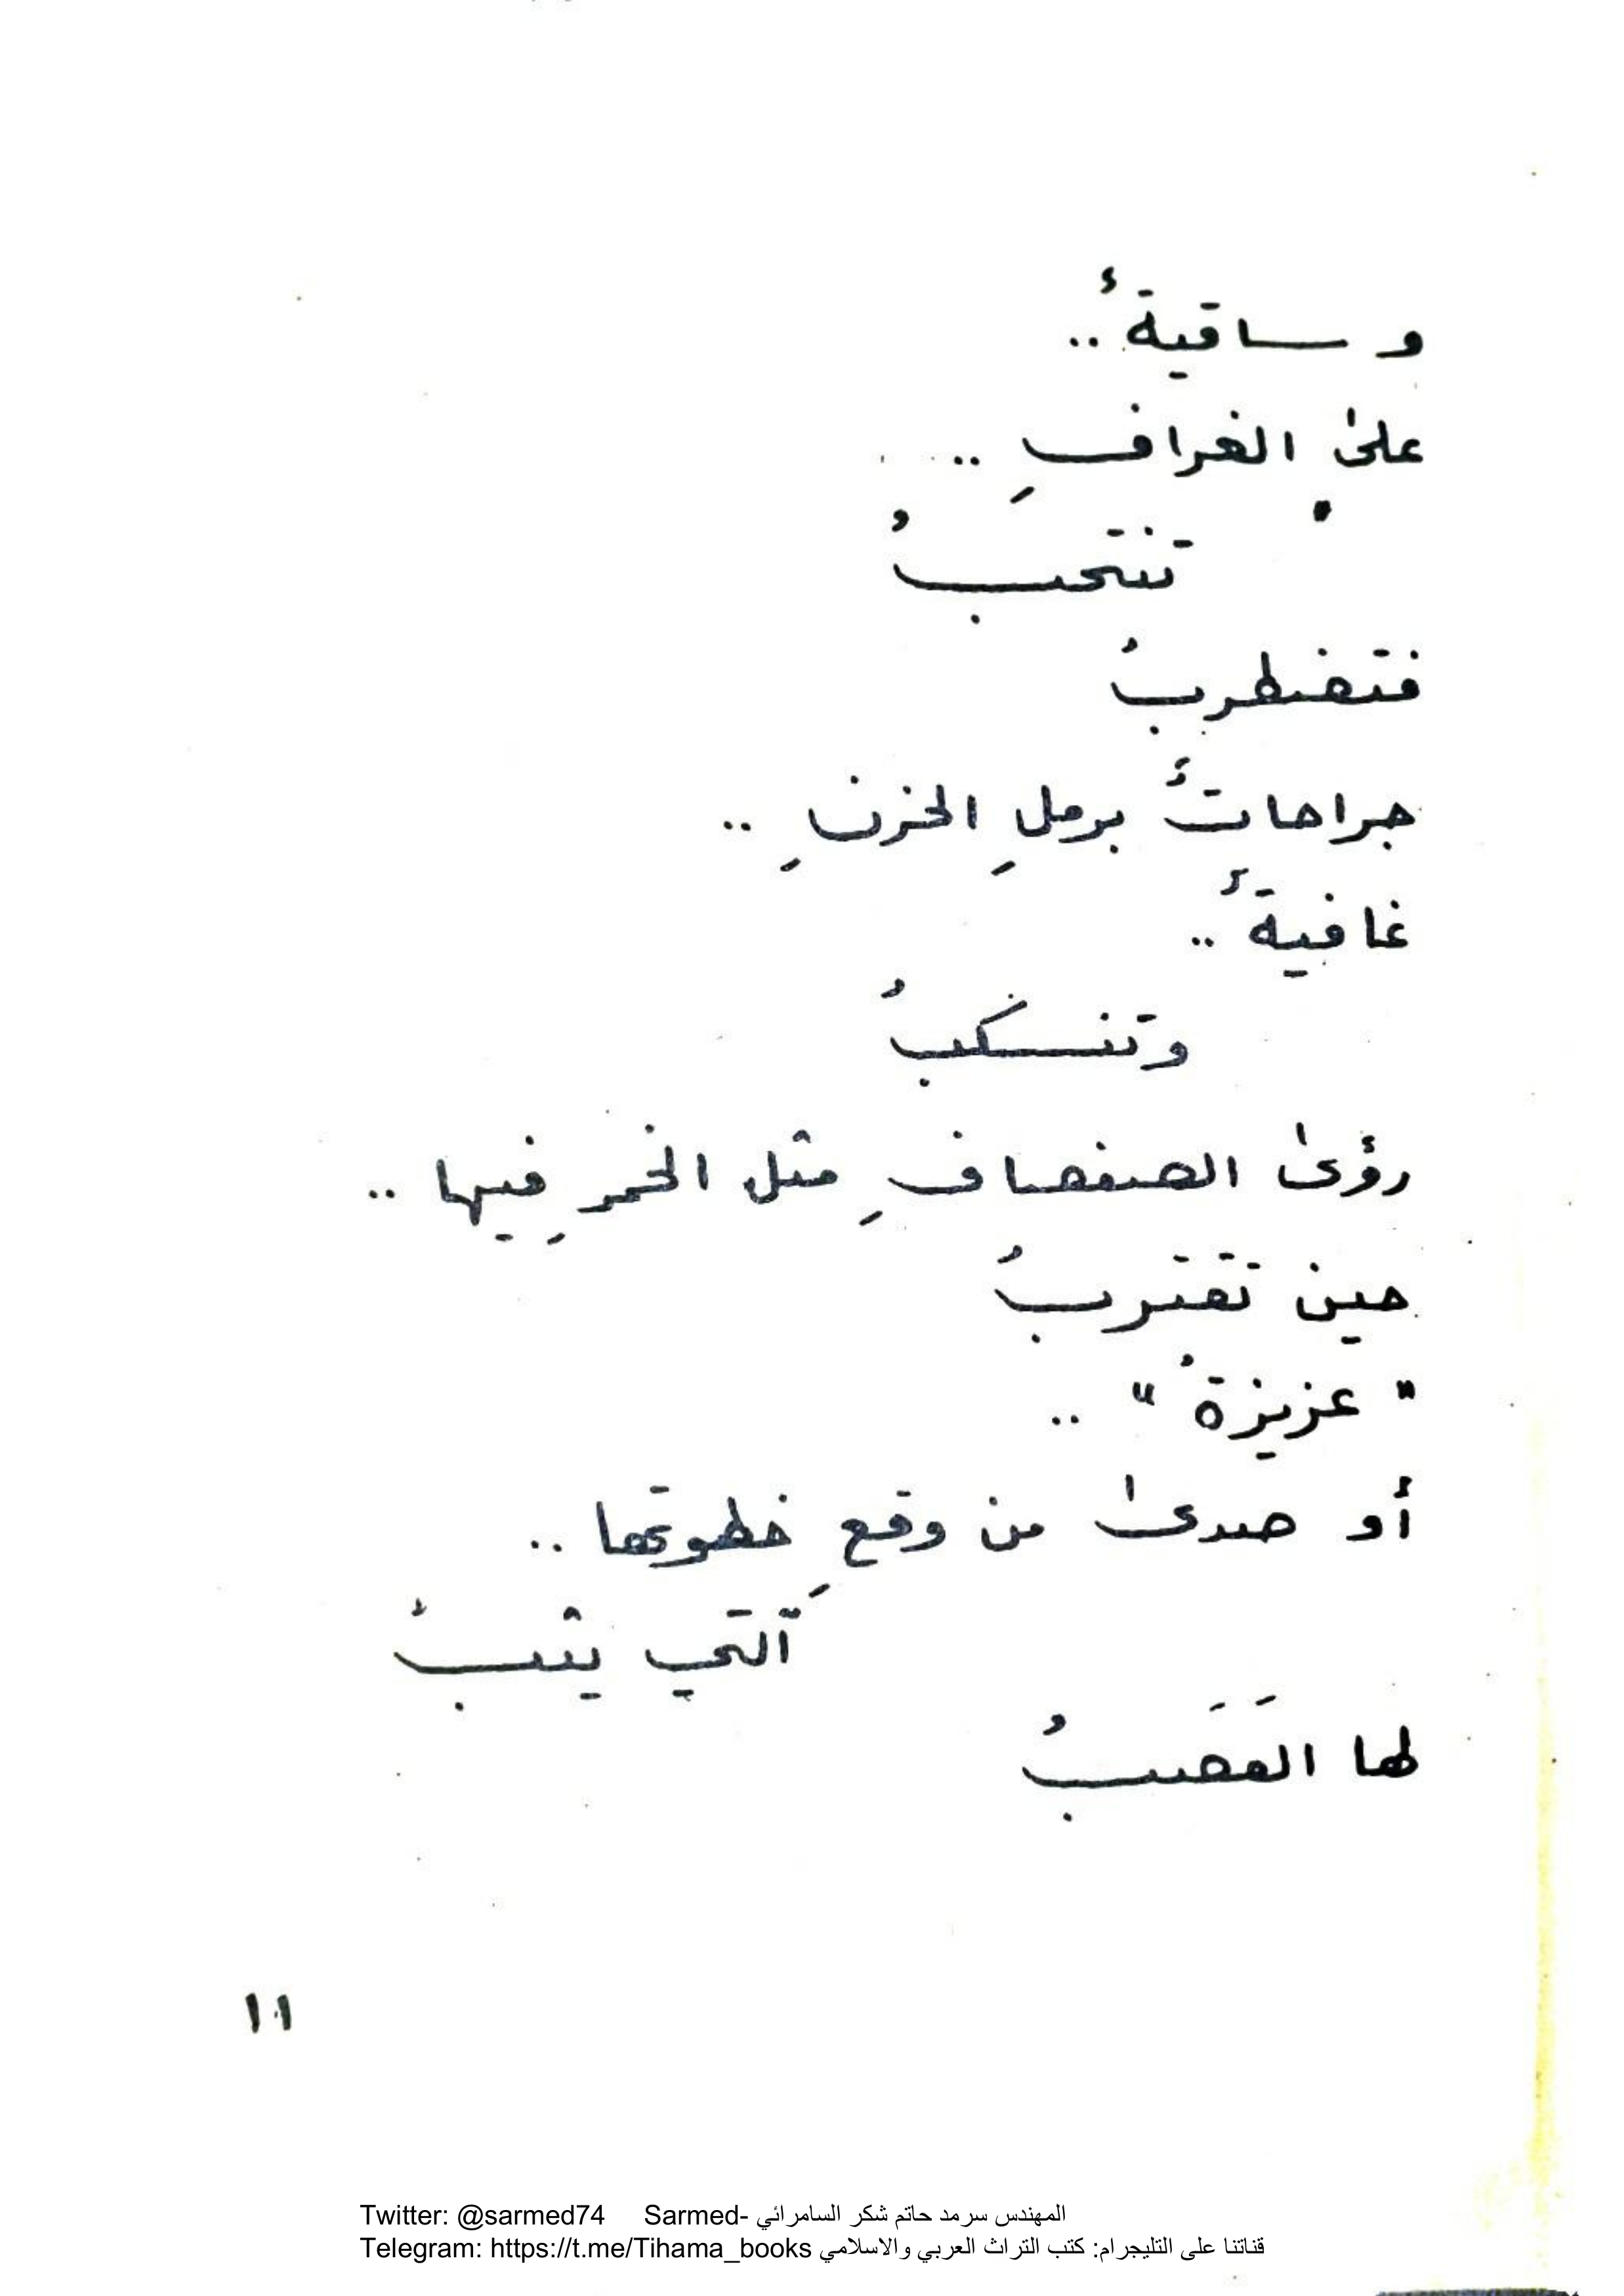 وساقيةٌ ..
على الغرافِ ..
تنتحبُ
فتضطربُ
جراحاتٌ برملِ الحزنِ ..
غافيةٌ ..
وتنسكبُ
رؤى الصفصافِ مثل الخمرِ فيها ..
حين تقتربُ
" عزيزةُ " ..
أو صدى من وقعِ خطوتها ..
آلّتي يثبُ
لها القَصَبُ
١١
Twitter: @sarmed74 Sarmed- المهندس سرمد حاتم شكر السامرائي
Telegram: https://t.me/Tihama_books قناتنا على التليجرام: كتب التراث العربي والاسلامي